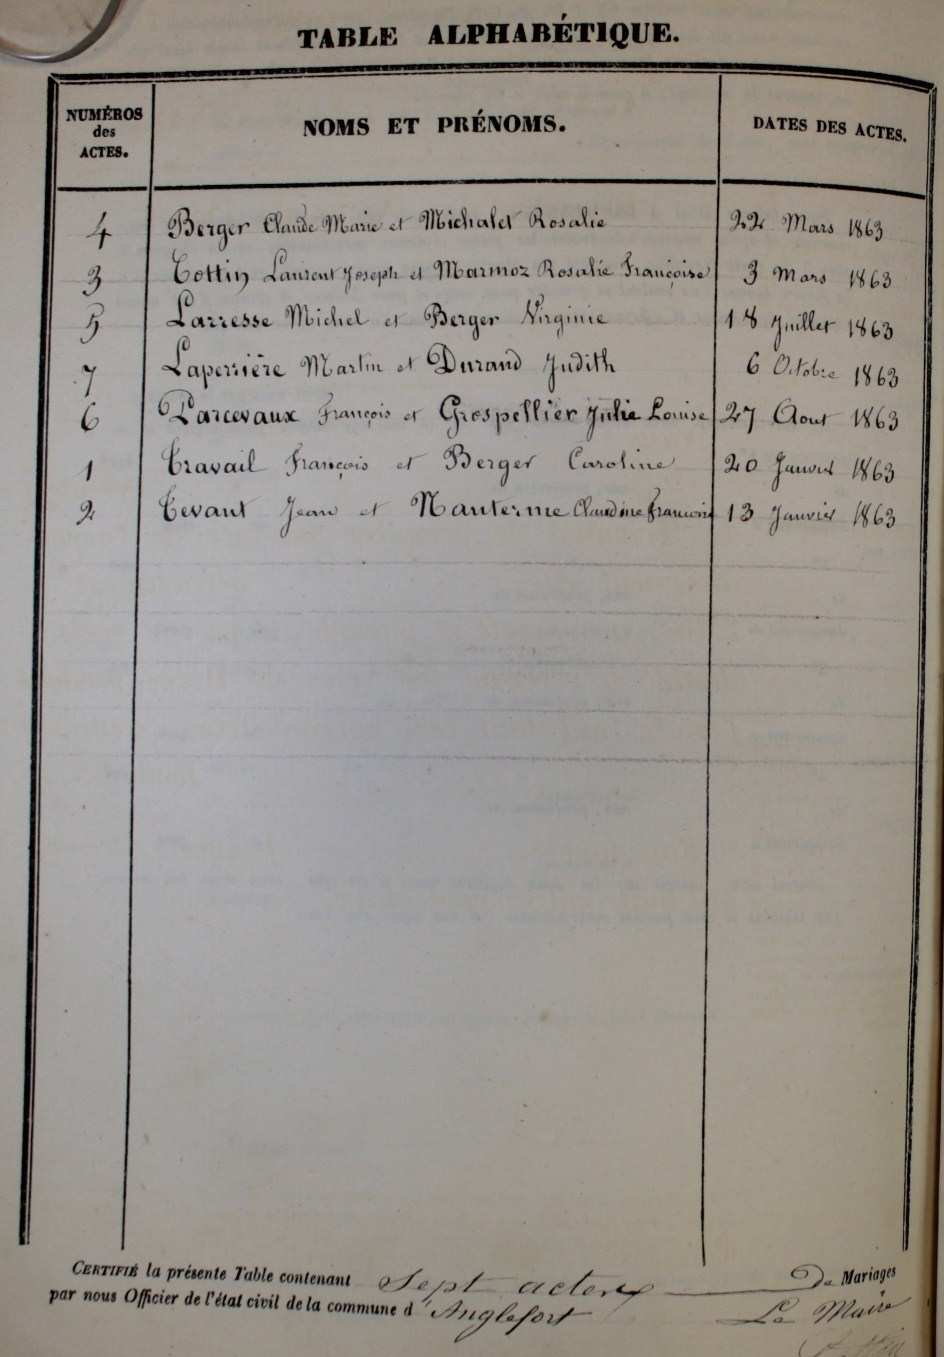 TABLE ALPHABÉTIQUE.
NUMÉROS des ACTES. NOMS ET PRÉNOMS. DATES DES ACTES.
4 Berger Claude Marie et Michalet Rosalie 22 Mars 1863
3 Cottin Laurent Joseph et Marmoz Rosalie Françoise 3 Mars 1863
5 Larresse Michel et Berger Virginie 18 Juillet 1863
7 Laperrière Martin et Durand Judith 6 Octobre 1863
6 Parcevaux François et Grospellier Julie Louise 27 Aout 1863
1 Travail François et Berger Caroline 20 Janvier 1863
2 Tevant Jean et Nanterme Claudine 13 Janvier 1863
CERTIFIÉ la présente Table contenant Sept actes De Mariages
par nous Officier de l'état civil de la commune d'Anglefort Le Maire